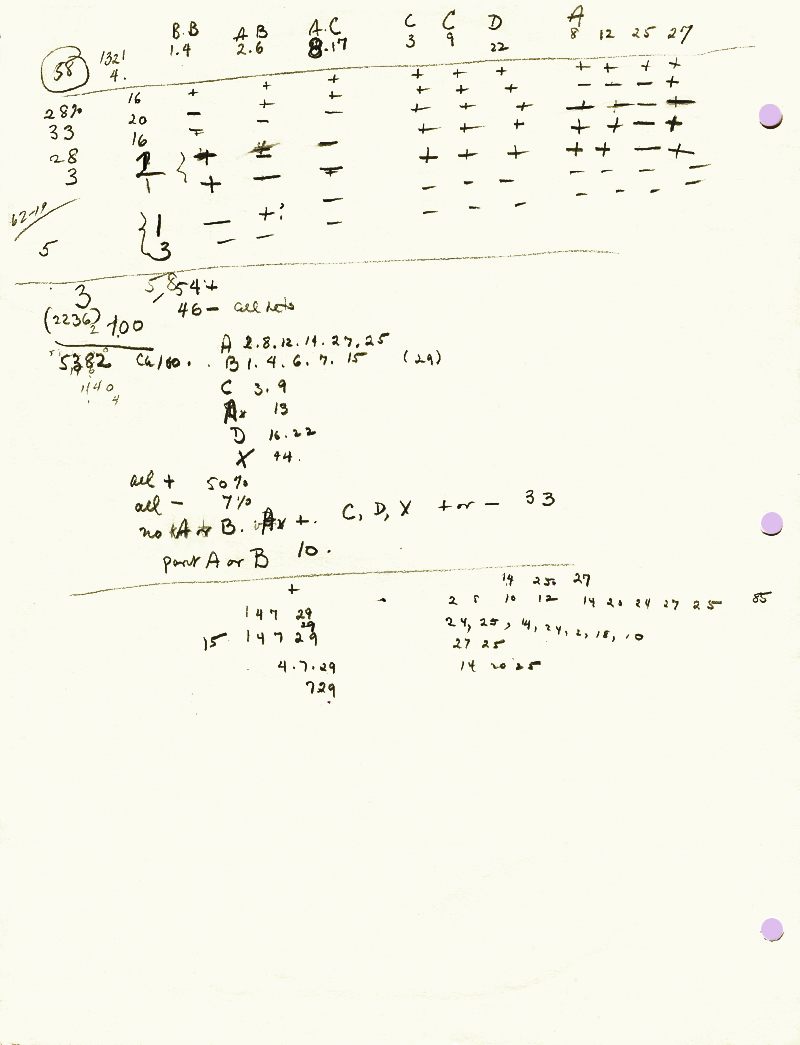 B.B A B A.C C C D A
58 1321 1.4 2.6 8.17 3 9 22 8 12 25 27
4. + + + + + + + + + +
28% 16 + + + + + + − − − +
33 20 − + − + + + + + − +
16 + − + + + + + − +
28 1 + + − + + + + + − +
3 1 + − +
62-19 − − − − − − −
1 − +? − − − − − − − −
5 3 − −
3 5,854+
46 − all nots
(2236)2 100
A 2.8.12.14.27.25
5382 Ca/100. . B 1.4.6.7.15 (29)
440 C 3.9
4 Ax 13
D 16.22
X 44.
all + 50%
all − 7%
no A or B. Ax +. C, D, X + or − 33
part A or B 10.
14 25 27
+ − 2 8 10 12 14 20 24 27 25 85
147 29 24, 25, 14, 24, 2, 18, 10
29
15 147 29 27 25
4.7.29 14 20 25
729